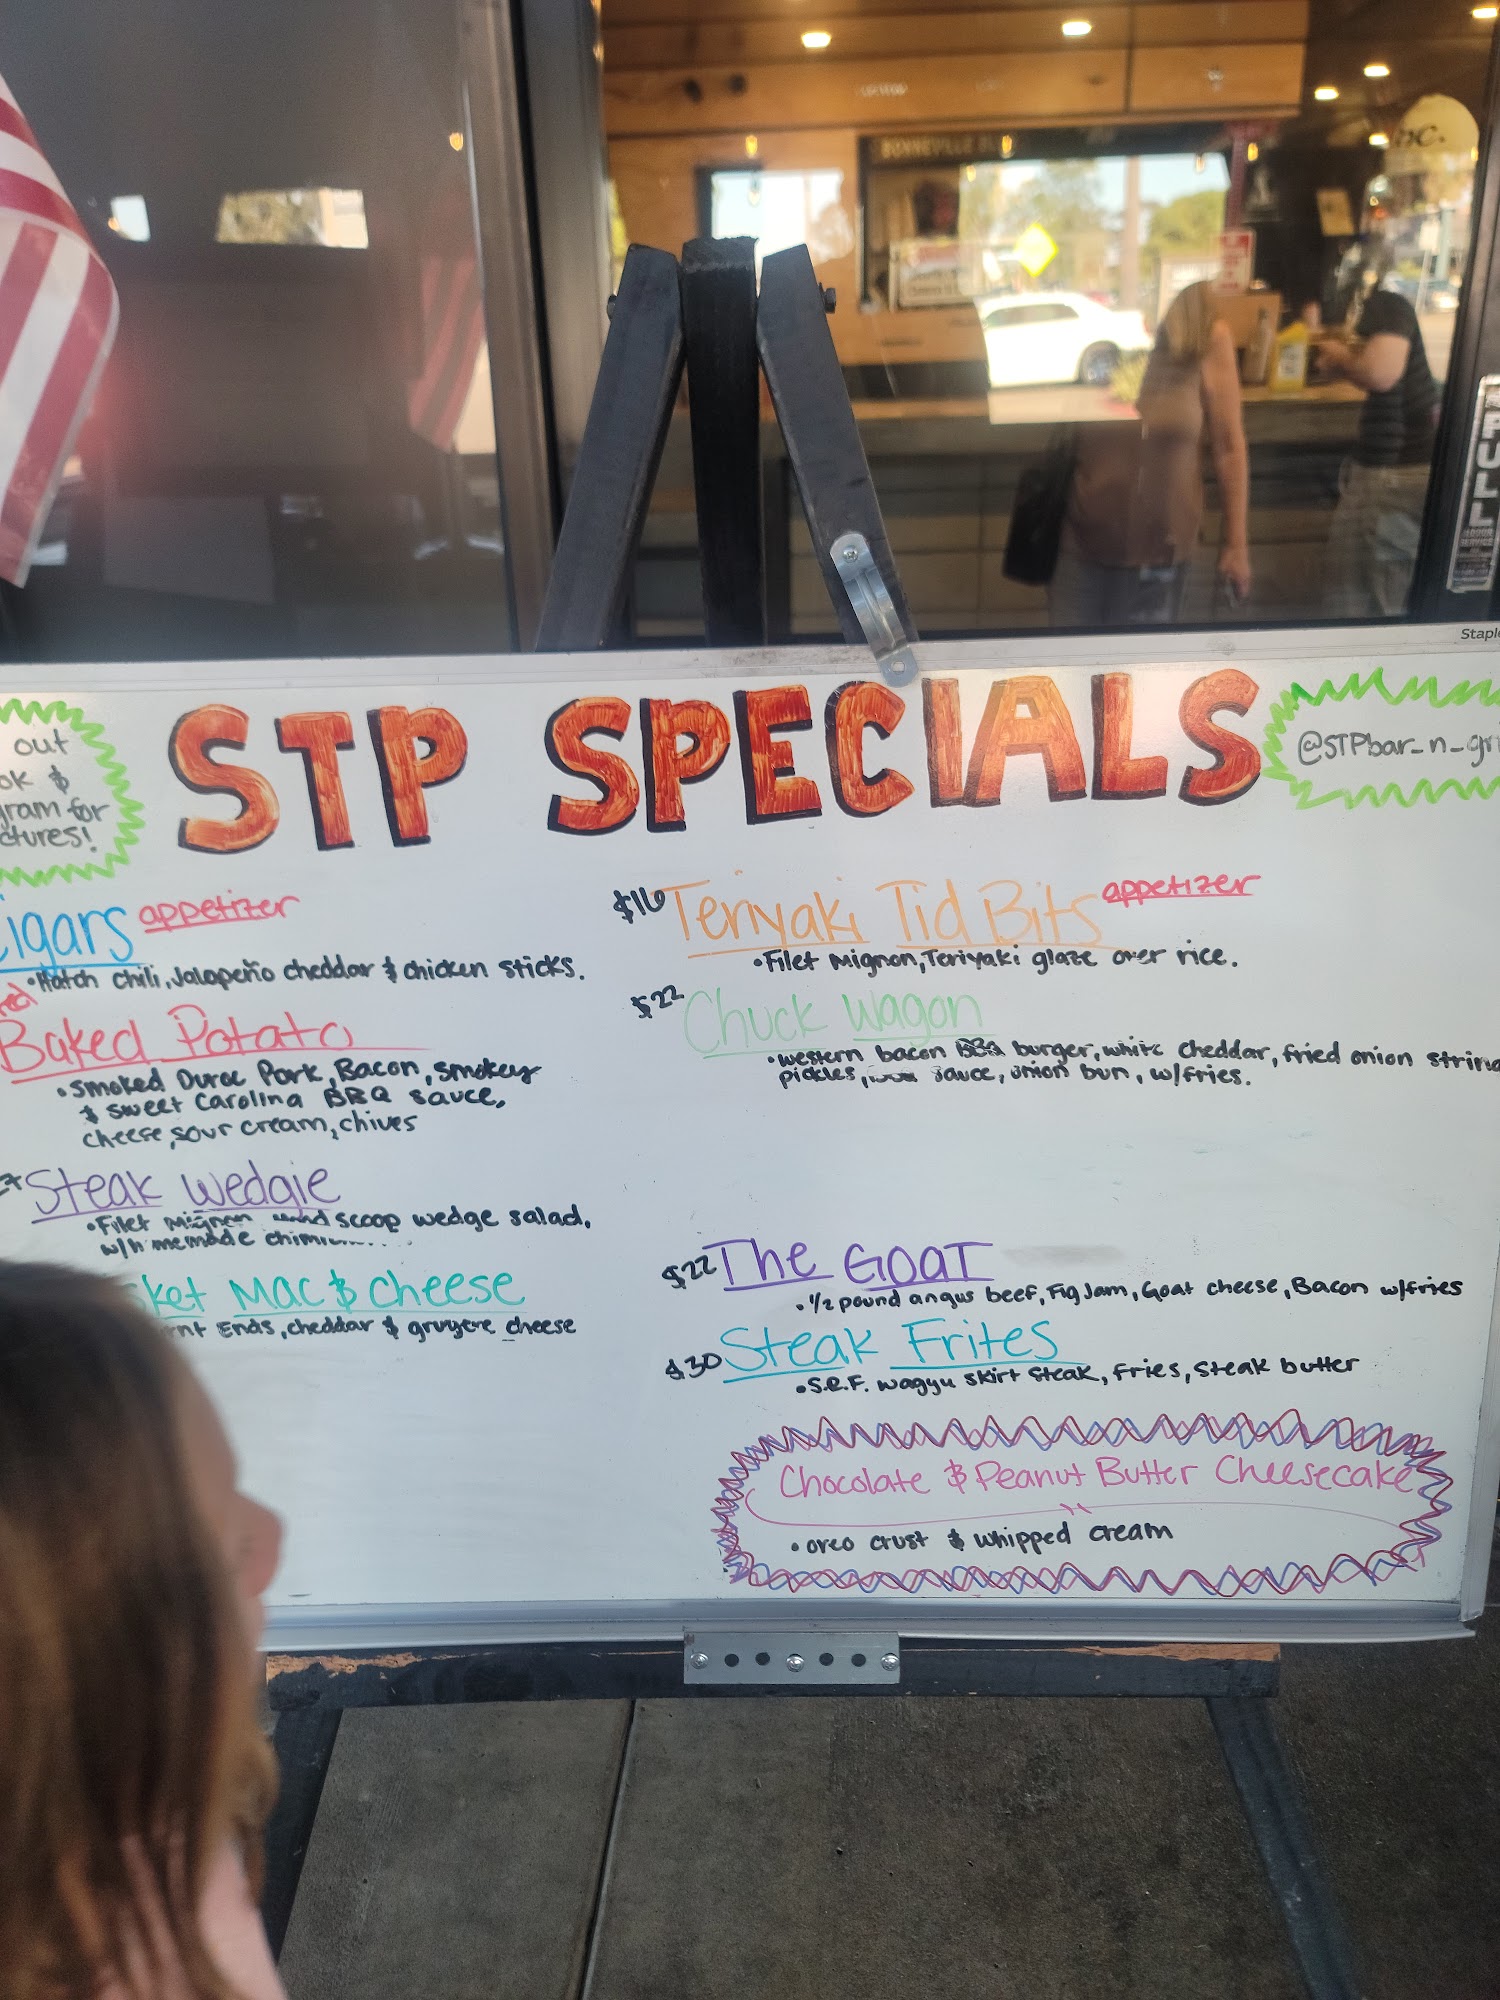 BONNEVILLE
PULL
Staple
STP SPECIALS
out
ok &
gram for
ctures!
@STPbar_n_gri
igars appetizer
•Hatch chili, Jalapeño cheddar & chicken sticks.
Baked Potato
•Smoked Duroc Pork, Bacon, smokey
& sweet Carolina BBQ sauce,
cheese, sour cream, chives
Steak Wedgie
•Filet Mignon scoop wedge salad,
w/homemade
sket Mac & Cheese
rnt Ends, cheddar & gruyere cheese
$16 Teriyaki Tid Bits appetizer
•Filet Mignon, Teriyaki glaze over rice.
$22 Chuck Wagon
•western bacon BBQ burger, white cheddar, fried onion string
pickles, sauce, onion bun, w/fries.
$22 The GOAT
•1/2 pound angus beef, Fig Jam, Goat cheese, Bacon w/fries
$30 Steak Frites
•S.R.F. wagyu skirt steak, fries, steak butter
Chocolate & Peanut Butter Cheesecake
•oreo crust & whipped cream